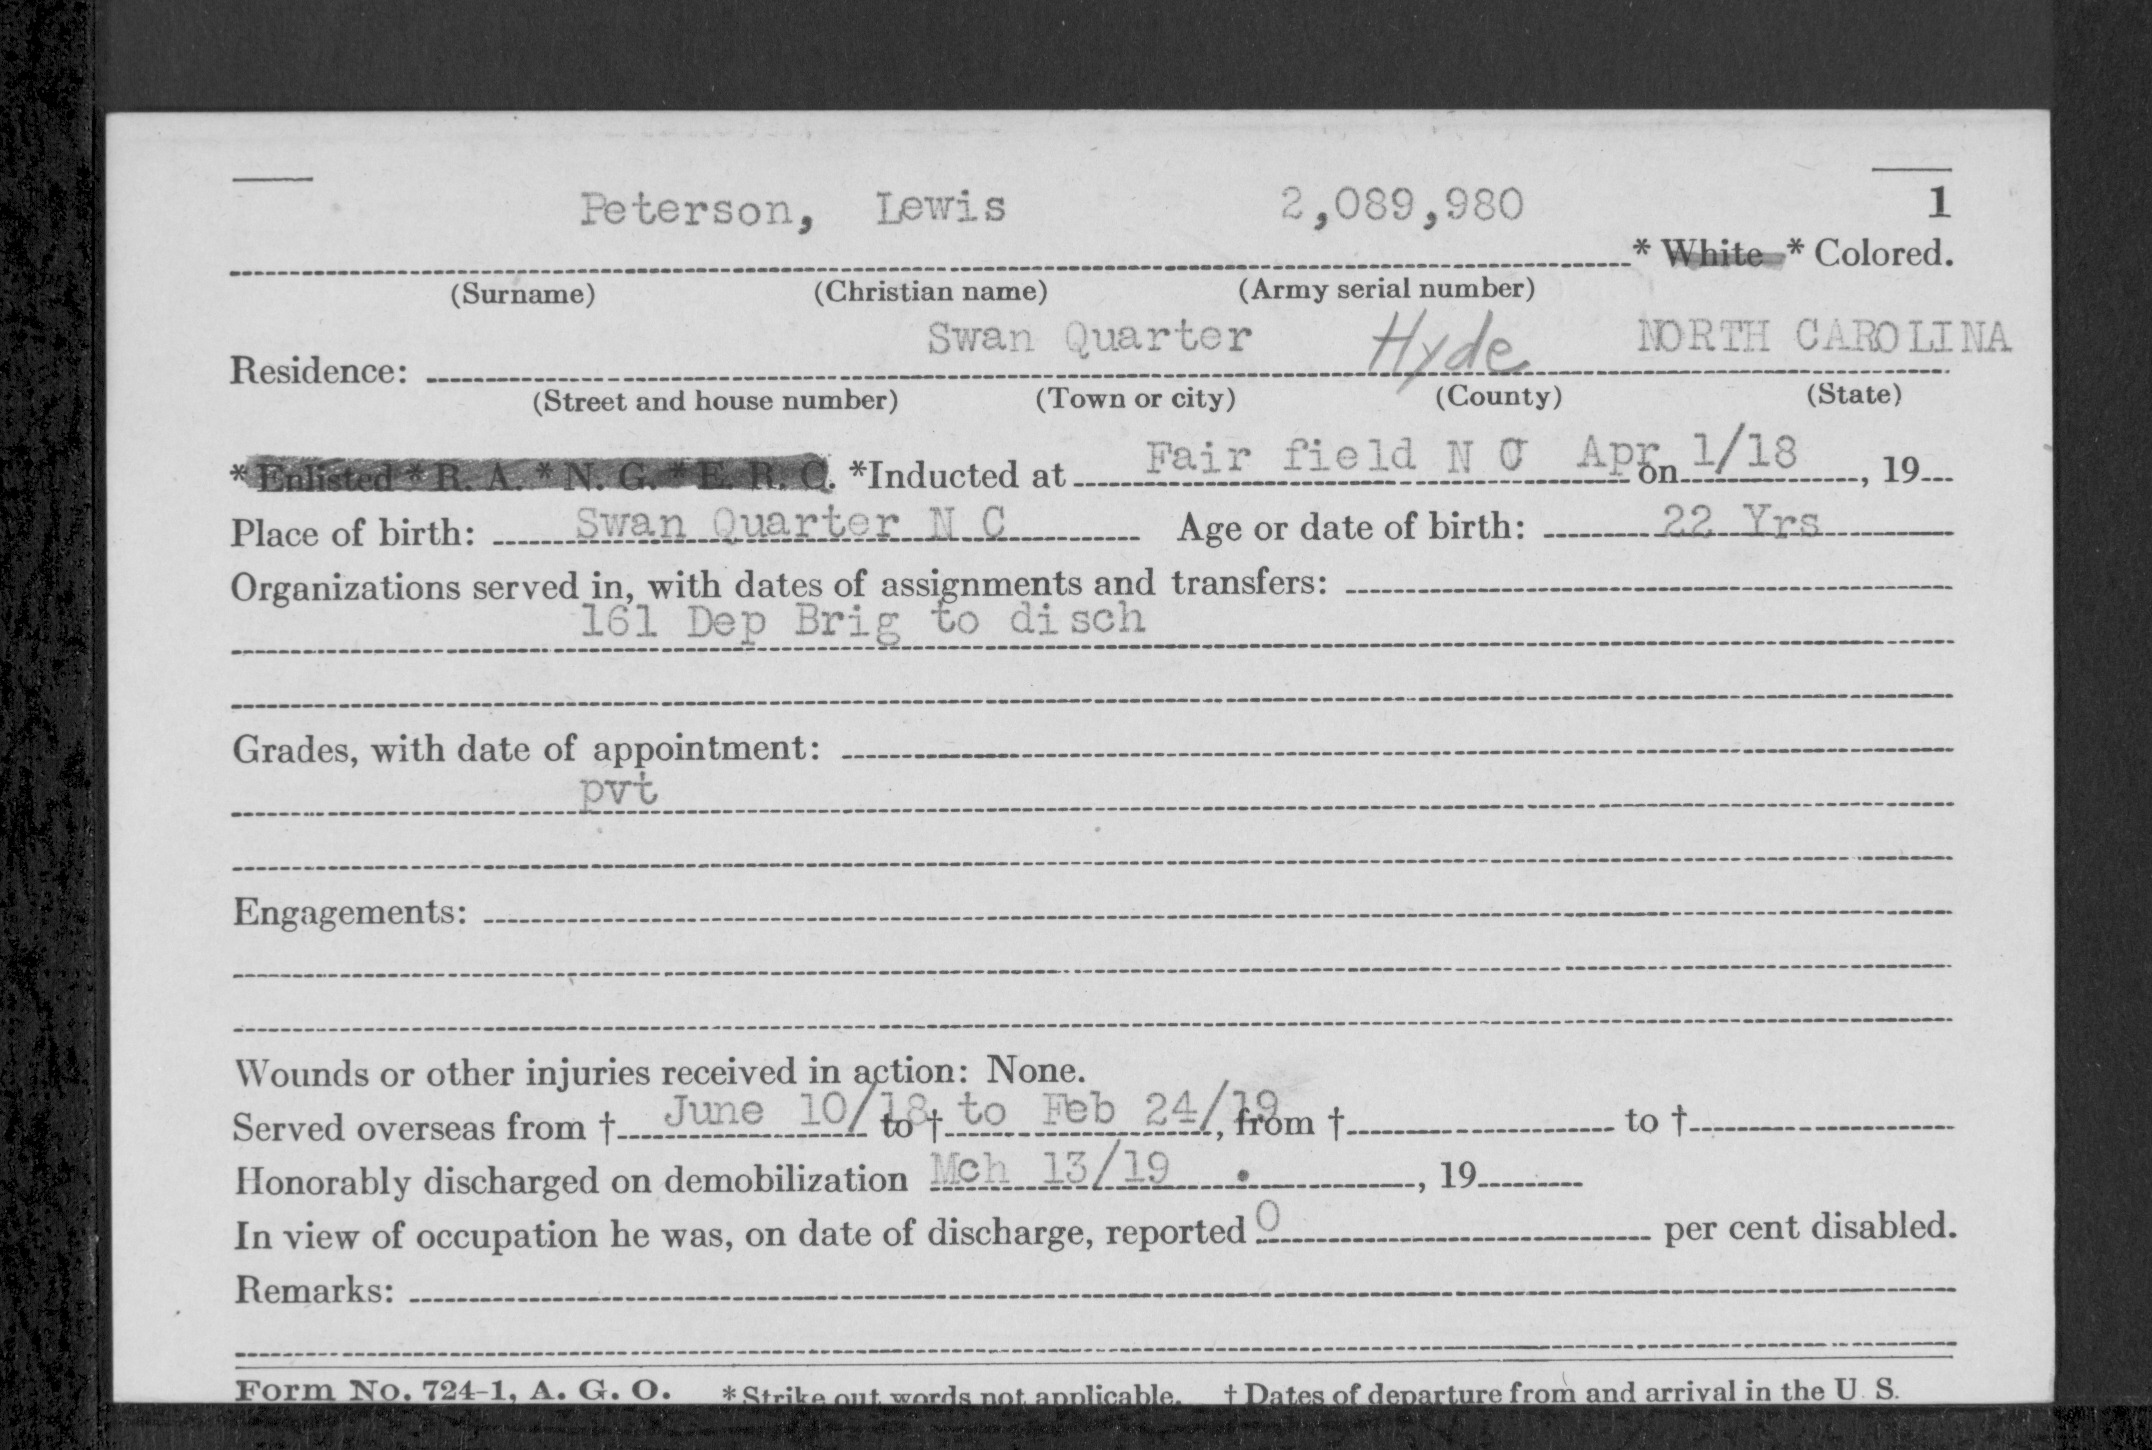 Peterson, Lewis 2,089,980 1
* White * Colored.
(Surname) (Christian name) (Army serial number)
Swan Quarter Hyde NORTH CAROLINA
Residence:
(Street and house number) (Town or city) (County) (State)
* Enlisted * R. A. * N. G. * E. R. C. *Inducted at Fair field N C Apr on 1/18, 19
Place of birth: Swan Quarter N C Age or date of birth: 22 Yrs
Organizations served in, with dates of assignments and transfers:
161 Dep Brig to disch
Grades, with date of appointment:
pvt
Engagements:
Wounds or other injuries received in action: None.
Served overseas from † June 10/18 to † to Feb 24/19, from † to †
Honorably discharged on demobilization Mch 13/19 . , 19
In view of occupation he was, on date of discharge, reported 0 per cent disabled.
Remarks:
Form No. 724-1, A. G. O. * Strike out words not applicable. † Dates of departure from and arrival in the U. S.